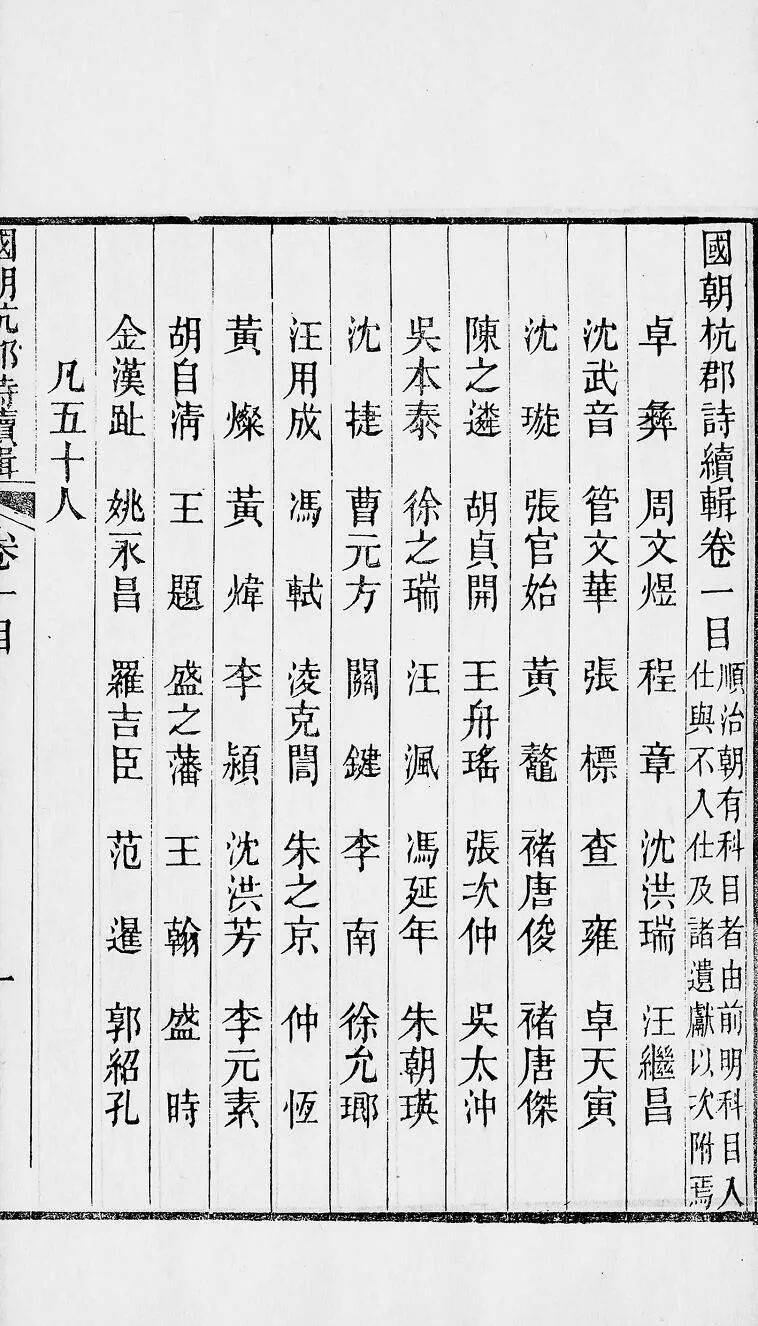 國朝杭郡詩續輯卷一目
順治朝有科目者由前明科目入
仕與不入仕及諸遺獻以次附焉
卓彝 周文煜 程章 沈洪瑞 汪繼昌
沈武音 管文華 張標 查雍 卓天寅
沈璇 張官始 黃鼇 褚唐俊 褚唐傑
陳之遴 胡貞開 王舟瑤 張次仲 吳太沖
吳本泰 徐之瑞 汪渢 馮延年 朱朝瑛
沈捷 曹元方 關鍵 李南 徐允瑯
汪用成 馮軾 淩克誾 朱之京 仲恆
黃燦 黃煒 李潁 沈洪芳 李元素
胡自淸 王題 盛之藩 王翰 盛時
金漢趾 姚永昌 羅吉臣 范暹 郭紹孔
凡五十人
國朝杭郡詩續輯 卷一目 一